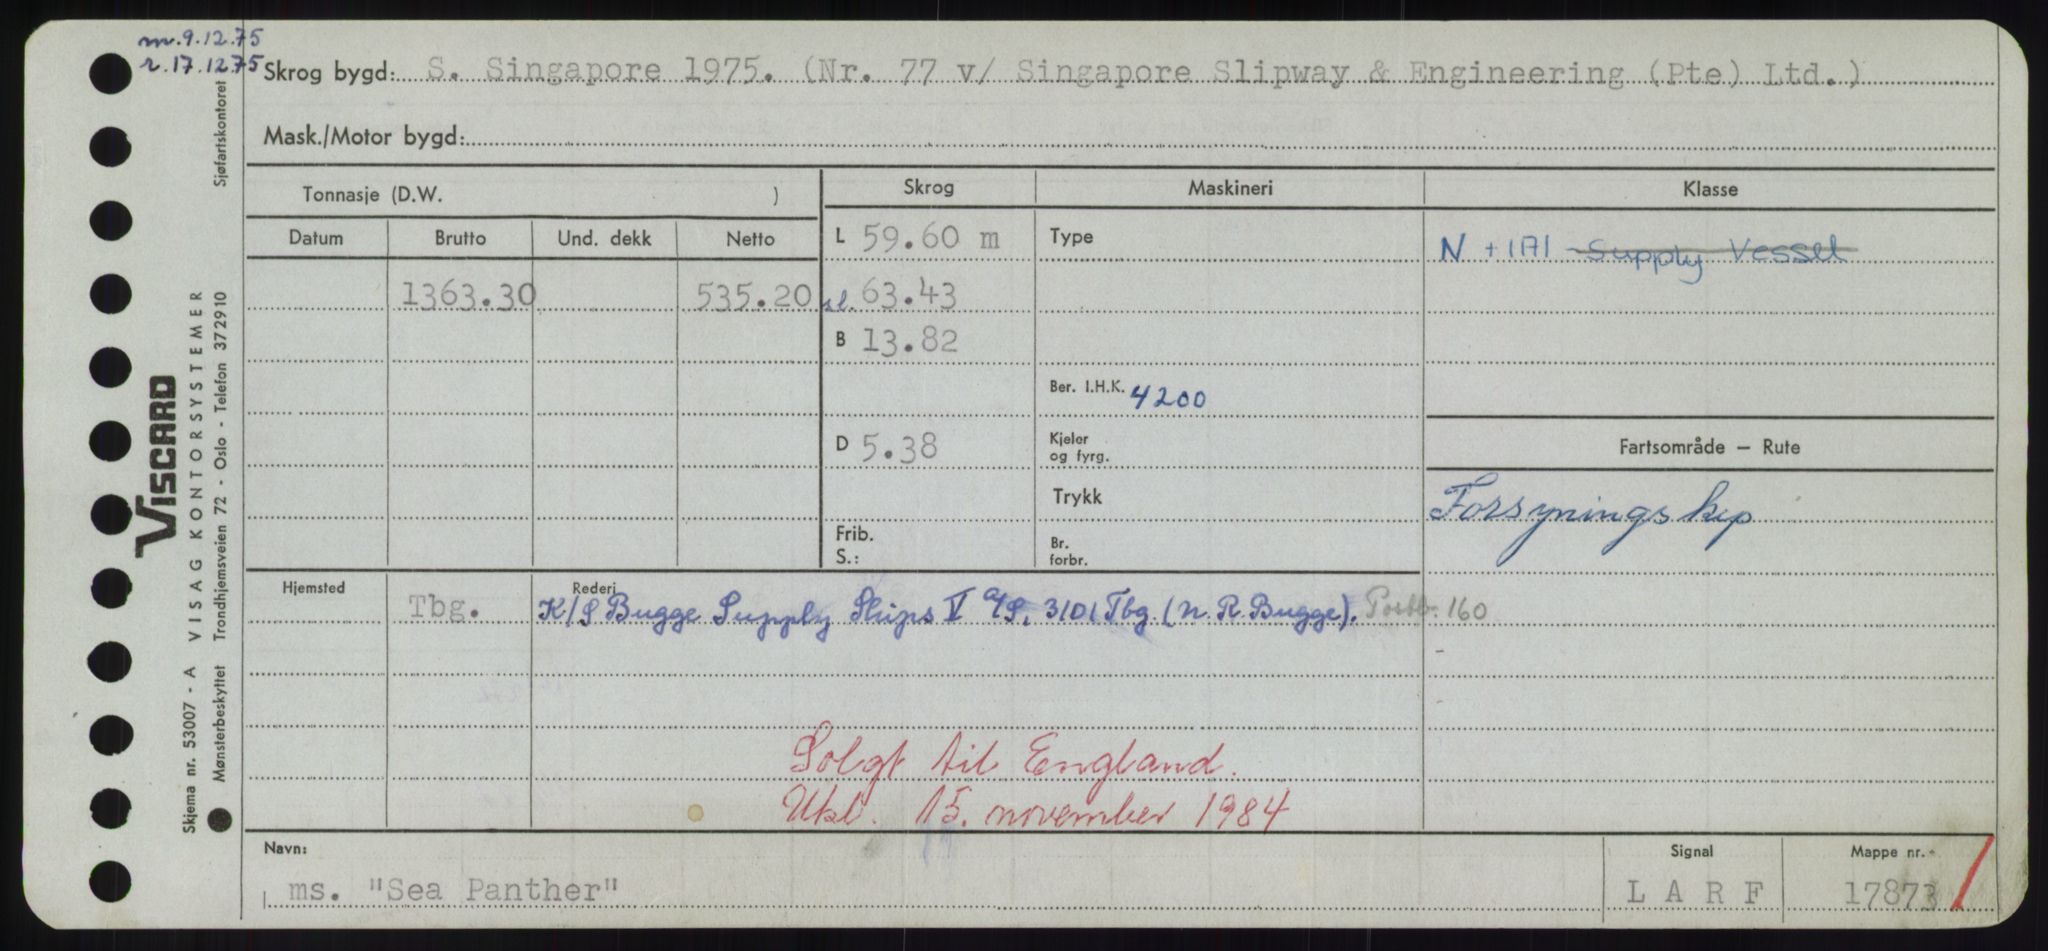 m. 9.12.75
r. 17.12.75
Skrog bygd: S. Singapore 1975. (Nr. 77 v/ Singapore Slipway & Engineering (Pte) Ltd.)
Mask./Motor bygd:
Tonnasje (D.W. )
Skrog
Maskineri
Klasse
Datum
Brutto
Und. dekk
Netto
L 59.60 m
Type
N +1A1 Supply Vessel
1363.30
535.20
sl. 63.43
B 13.82
Ber. I.H.K. 4200
D 5.38
Kjeler
og fyrg.
Fartsområde — Rute
Trykk
Forsyningskip
Frib.
S.:
Br.
forbr.
Hjemsted
Tbg.
Rederi
K/S Bugge Supply Ships V A/S, 3101 Tbg. (N. R. Bugge). Postb. 160
Solgt til England.
15. november 1984
Navn:
ms. "Sea Panther"
Signal
L A R F
Mappe nr.
17873
VISCARD
VISAG KONTORSYSTEMER
Skjema nr. 53007 - A
Mønsterbeskyttet Trondhjemsveien 72 - Oslo - Telefon 372910
Sjøfartskontoret